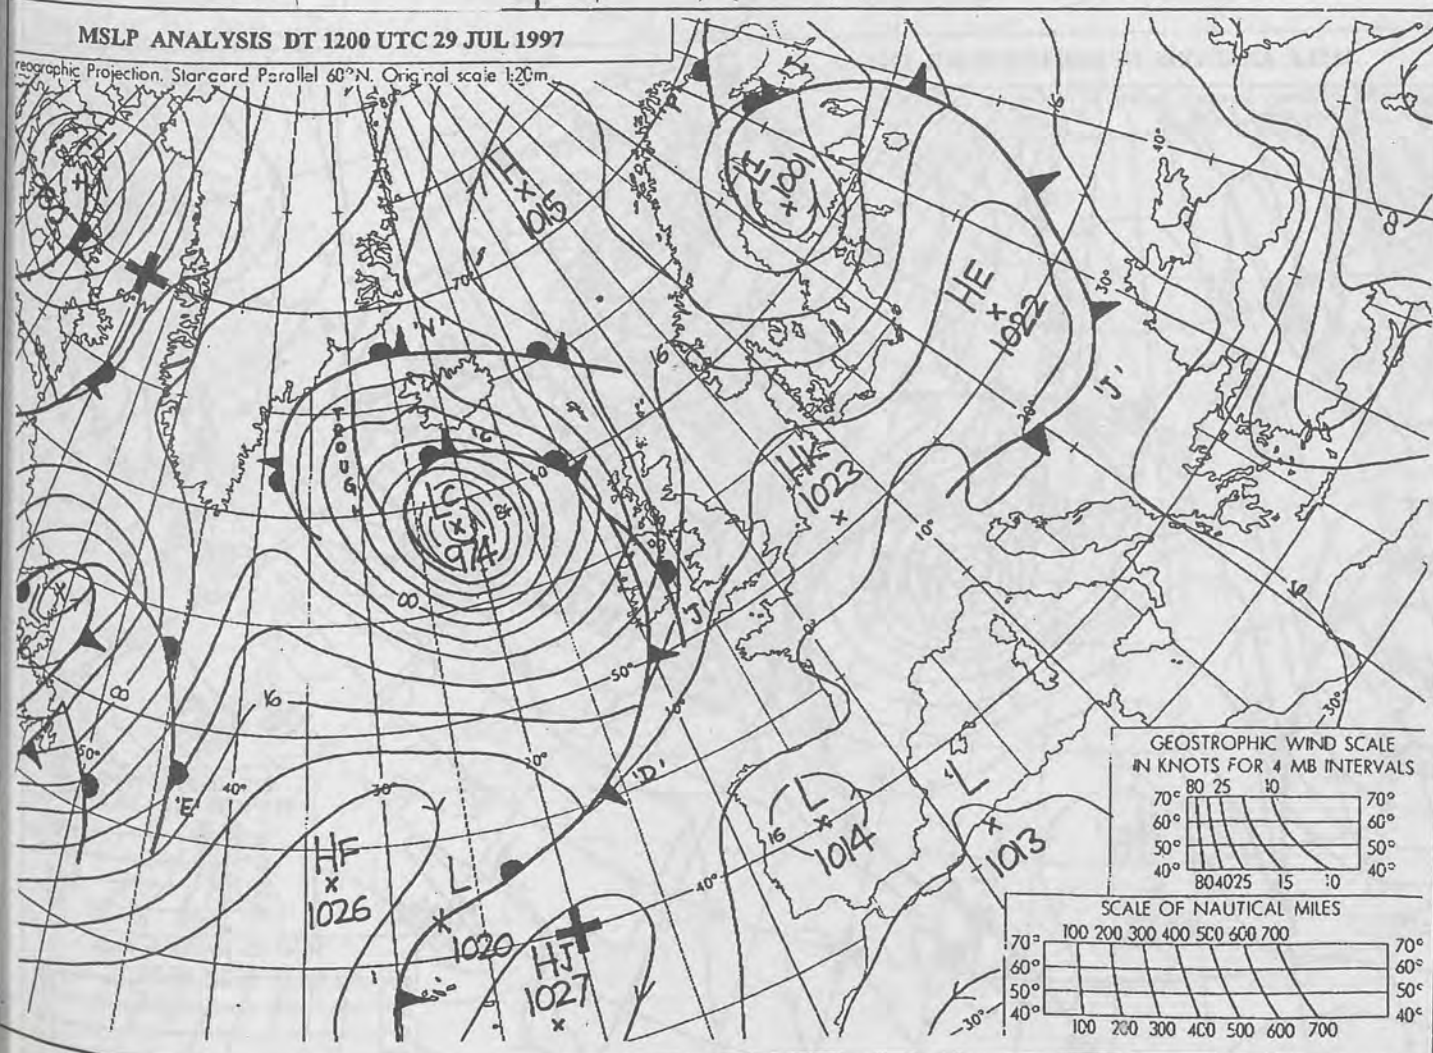 MSLP ANALYSIS DT 1200 UTC 29 JUL 1997
reographic Projection, Standard Parallel 60°N. Original scale 1:20m
H
1015
1001
HE
1022
'J'
'N'
TROUGH
'G'
LC
974
HK
1023
'J'
'D'
'E'
HF
1026
L
1020
HJ
1027
L
1014
L
1013
16
16
16
16
8
8
00
70°
60
50°
50°
40°
30°
20°
10°
0°
10°
20°
30°
40°
40°
30°
30°
GEOSTROPHIC WIND SCALE
IN KNOTS FOR 4 MB INTERVALS
80 25 10
70° 70°
60° 60°
50° 50°
40° 40°
80 40 25 15 10
SCALE OF NAUTICAL MILES
100 200 300 400 500 600 700
70° 70°
60° 60°
50° 50°
40° 40°
100 200 300 400 500 600 700